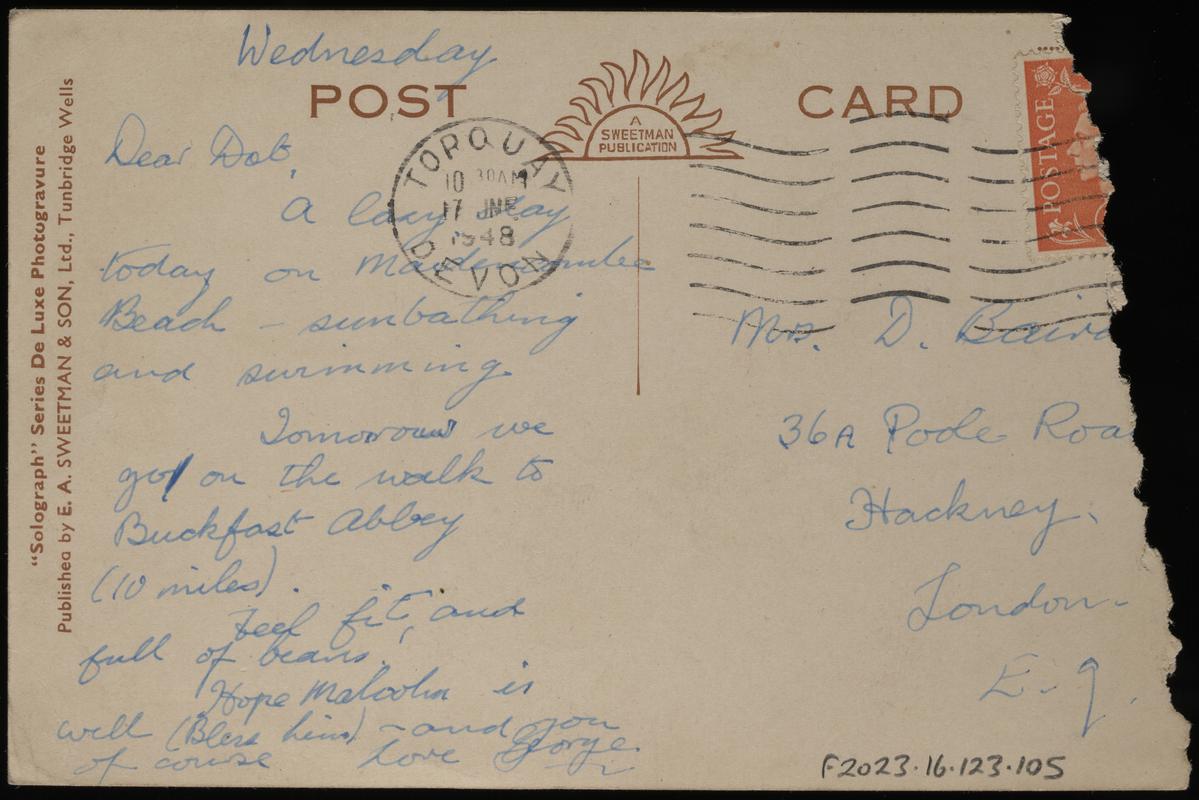 Wednesday
POST CARD
A
SWEETMAN
PUBLICATION
POSTAGE
TORQUAY
10 30AM
17 JNE
1948
DEVON
Dear Dot,
A lazy day
today on Maidencombe
Beach – sunbathing
and swimming.
Tomorrow we
go on the walk to
Buckfast Abbey
(10 miles).
Feel fit, and
full of beans.
Hope Malcolm is
well (Bless him) – and you
of course Love George.
Mrs. D. Baird
36A Poole Roa
Hackney.
London.
E.9.
"Solograph" Series De Luxe Photogravure
Published by E. A. SWEETMAN & SON, Ltd., Tunbridge Wells
F2023.16.123.105